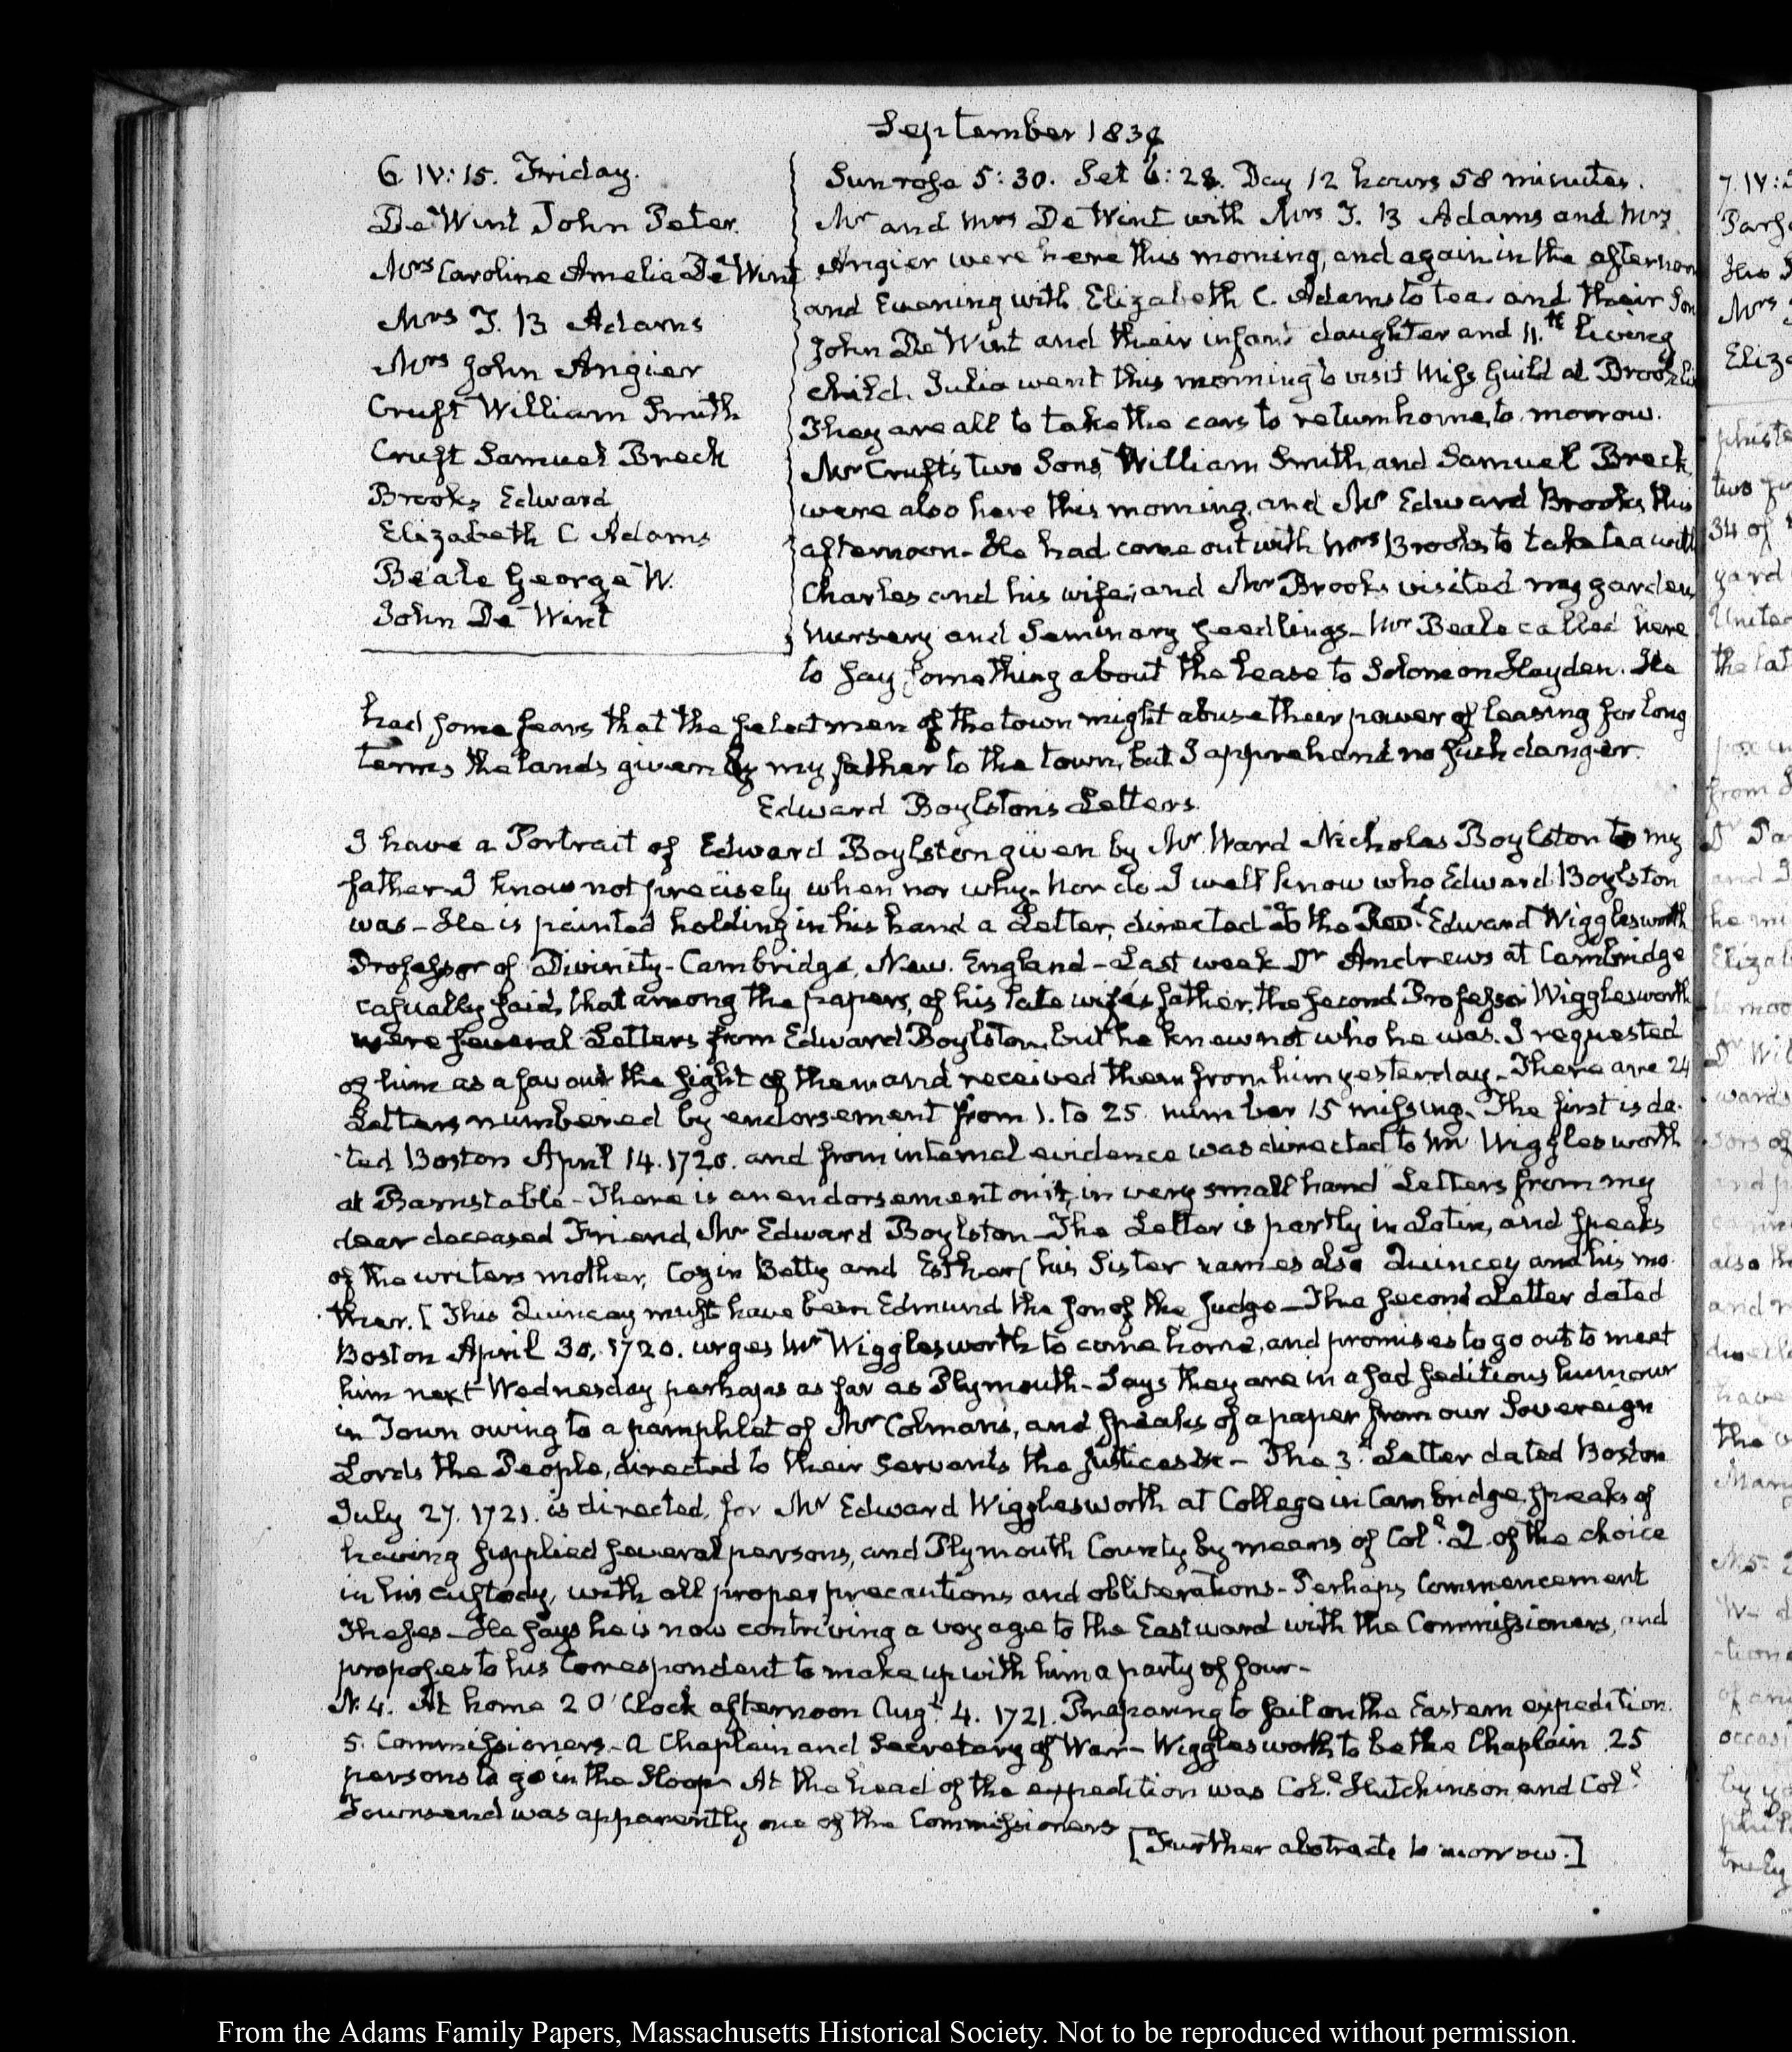 September 1839
6. IV: 15. Friday.
De Wint John Peter.
Mrs Caroline Amelia De Wint
Mrs T. B Adams
Mrs John Angier
Cruft William Smith
Cruft Samuel Breck
Brooks Edward
Elizabeth C Adams
Beale George W.
John De Wint
Sun rose 5:30. Set 6:28. Day 12 hours 58 minutes.
Mr and Mrs De Wint with Mrs T. B Adams and Mrs
Angier were here this morning, and again in the afternoon
and Evening with Elizabeth C. Adams to tea. and their Son
John De Wint and their infant daughter and 11.th living
child. Julia went this morning to visit Miss Guild at Brookline
They are all to take the cars to return home to morrow.
Mr Cruft's two Sons, William Smith, and Samuel Breck,
were also here this morning, and Mr Edward Brooks this
afternoon. He had come out with Mrs Brooks to take tea with
Charles and his wife; and Mr Brooks visited my garden
nursery and Seminary seedlings. Mr Beale called here
to say something about the lease to Solomon Hayden. He
had some fears that the select men of the town might abuse their power of leasing for long
terms, the lands given by my father to the town, but I apprehend no such danger.
Edward Boylstons Letters.
I have a Portrait of Edward Boylston given by Mr Ward Nicholas Boylston to my
father. I know not precisely when nor why. Nor do I well know who Edward Boylston
was - He is painted holding in his hand a Letter, directed To the Revd Edward Wigglesworth
Professor of Divinity - Cambridge, New. England - Last week Dr Andrews at Cambridge
casually said, that among the papers, of his late wife's father, the second Professor Wigglesworth
were several Letters from Edward Boylston, but he knew not who he was. I requested
of him as a favour the sight of them and received them from him yesterday - There are 24
Letters numbered by endorsement from 1. to 25 number 15 missing. The first is da-
-ted Boston April 14. 1720. and from internal evidence was directed to Mr Wigglesworth
at Barnstable - There is an endorsement on it, in very small hand Letters from my
dear deceased Friend, Mr Edward Boylston - The Letter is partly in Latin, and speaks
of the writers mother, Cozin Betty and Esther (his Sister names also Quincey and his mo-
ther. [This Quincey must have been Edmund the son of the Judge - The second Letter dated
Boston April 30, 1720. urges Mr Wigglesworth to come home, and promises to go out to meet
him next Wednesday perhaps as far as Plymouth - Says they are in a sad seditious humour
in Town owing to a pamphlet of Mr Colman's, and speaks of a paper from our Sovereign
Lords the People, directed to their Servants the Justices &c - The 3.d Letter dated Boston
July 27. 1721. is directed, for Mr Edward Wigglesworth at College in Cambridge. speaks of
having supplied several persons, and Plymouth County by means of Coll Q. of the choice
in his custody, with all proper precautions and obliterations - Perhaps Commencement
Theses - He says he is now contriving a voyage to the Eastward with the Commissioners, and
proposes to his Correspondent to make up with him a party of four -
N. 4. At home 2 O'Clock afternoon Augt 4. 1721. Preparing to sail on the Eastern expedition.
5. Commissioners - a Chaplain and Secretary of War - Wigglesworth to be the Chaplain. 25
persons to go in the Sloop At the head of the expedition was Coll Hutchinson and Coll
Townsend was apparently one of the Commissioners
[Further abstracts to morrow.]
From the Adams Family Papers, Massachusetts Historical Society. Not to be reproduced without permission.